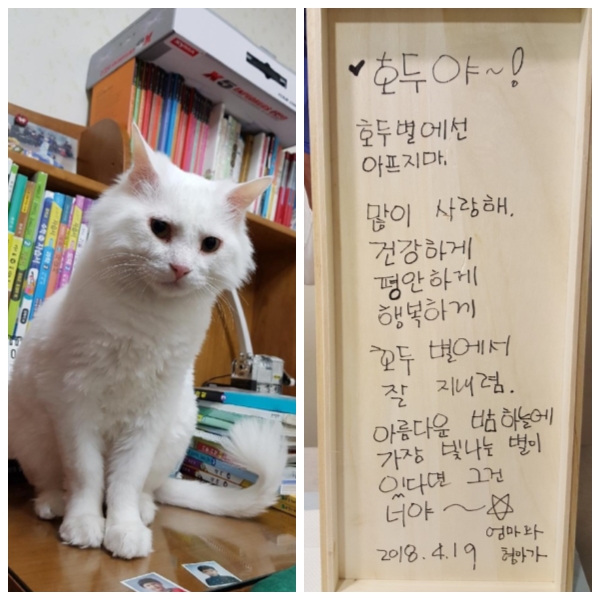 ♥ 호두야~!
호두별에선
아프지마.
많이 사랑해.
건강하게
평안하게
행복하게
호두 별에서
잘 지내렴.
아름다운 밤하늘에
가장 빛나는 별이
있다면 그건
너야 ~☆
엄마와
2018.4.19 형아가